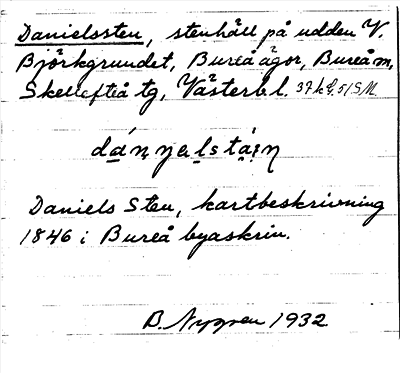 Danielssten, stenhäll på udden V.
Björkgrundet, Bureå ägor, Bureå m,
Skellefteå tg, Västerb. l.
Daniels Sten, kartbeskrivning
1846 i Bureå byaskrin.
B. Nygren 1932